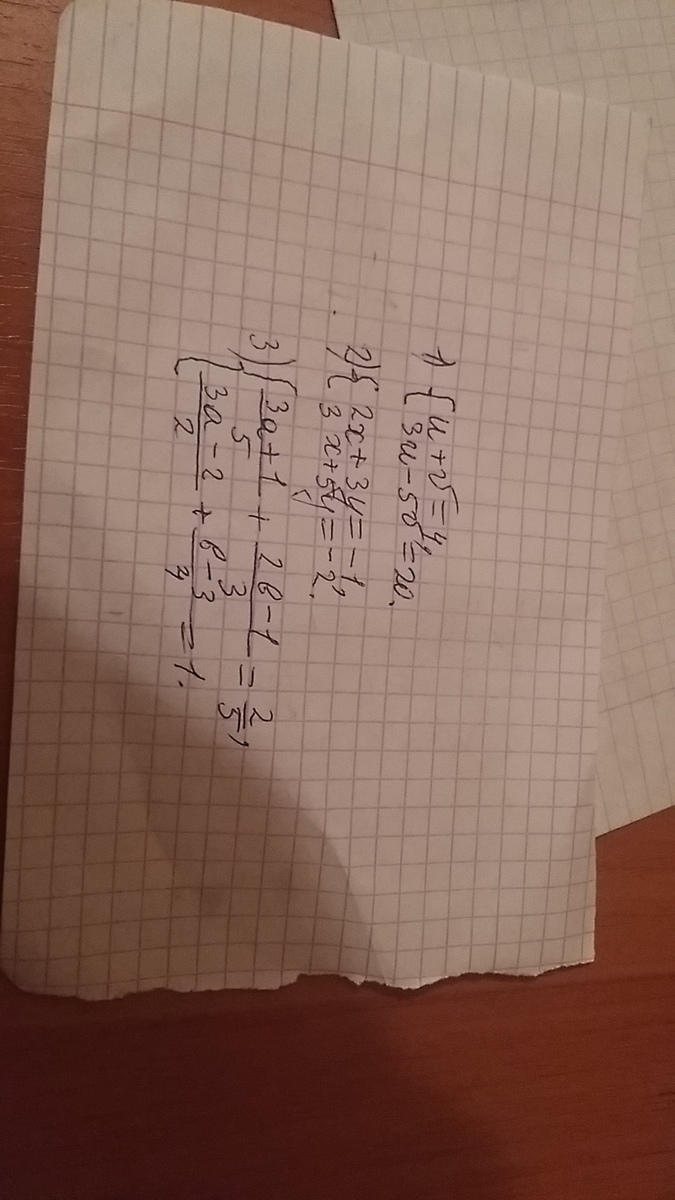 1) { u + v = 4,
3u - 5v = 20.
2) { 2x + 3y = -1,
3x + 5y = -2.
3) { (3a + 1)/5 + (2в - 1)/3 = 2/5,
(3a - 2)/2 + (в - 3)/4 = 1.